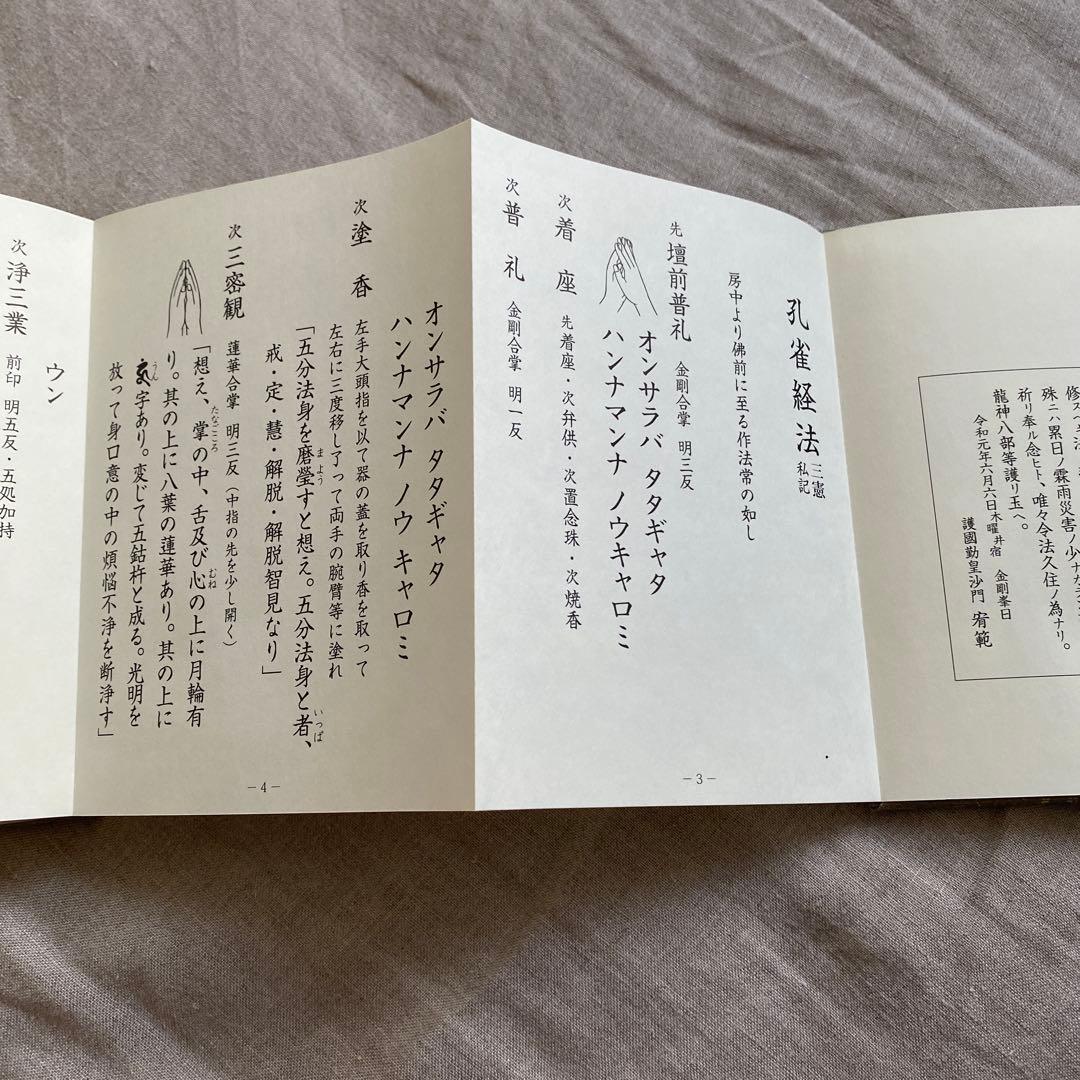 殊ニハ累日ノ霖雨災害ノ少ナカランコトヲ
祈リ奉ル念ヒト、唯々令法久住ノ為ナリ。
龍神八部等護リ玉ヘ。
令和元年六月六日木曜井宿 金剛峯日
護國勤皇沙門 宥範
孔雀経法 三憲私記
房中より佛前に至る作法常の如し
先 壇前普礼 金剛合掌 明三反
オンサラバ タタギャタ
ハンナマンナ ノウキャロミ
次 着座 先着座・次弁供・次置念珠・次焼香
次 普礼 金剛合掌 明一反
－3－
オンサラバ タタギャタ
ハンナマンナ ノウキャロミ
次 塗香 左手大頭指を以て器の蓋を取り香を取って
左右に三度移し了って両手の腕臂等に塗れ
「五分法身を磨瑩すと想え。五分法身と者、
まよう
いっぱ
戒・定・慧・解脱・解脱智見なり」
次 三密観 蓮華合掌 明三反（中指の先を少し開く）
「想え、掌の中、舌及び心の上に月輪有
たなごころ
むね
り。其の上に八葉の蓮華あり。其の上に
字あり。変じて五鈷杵と成る。光明を
うん
放って身口意の中の煩悩不浄を断浄す」
ウン
－4－
次 浄三業 前印 明五反・五処加持